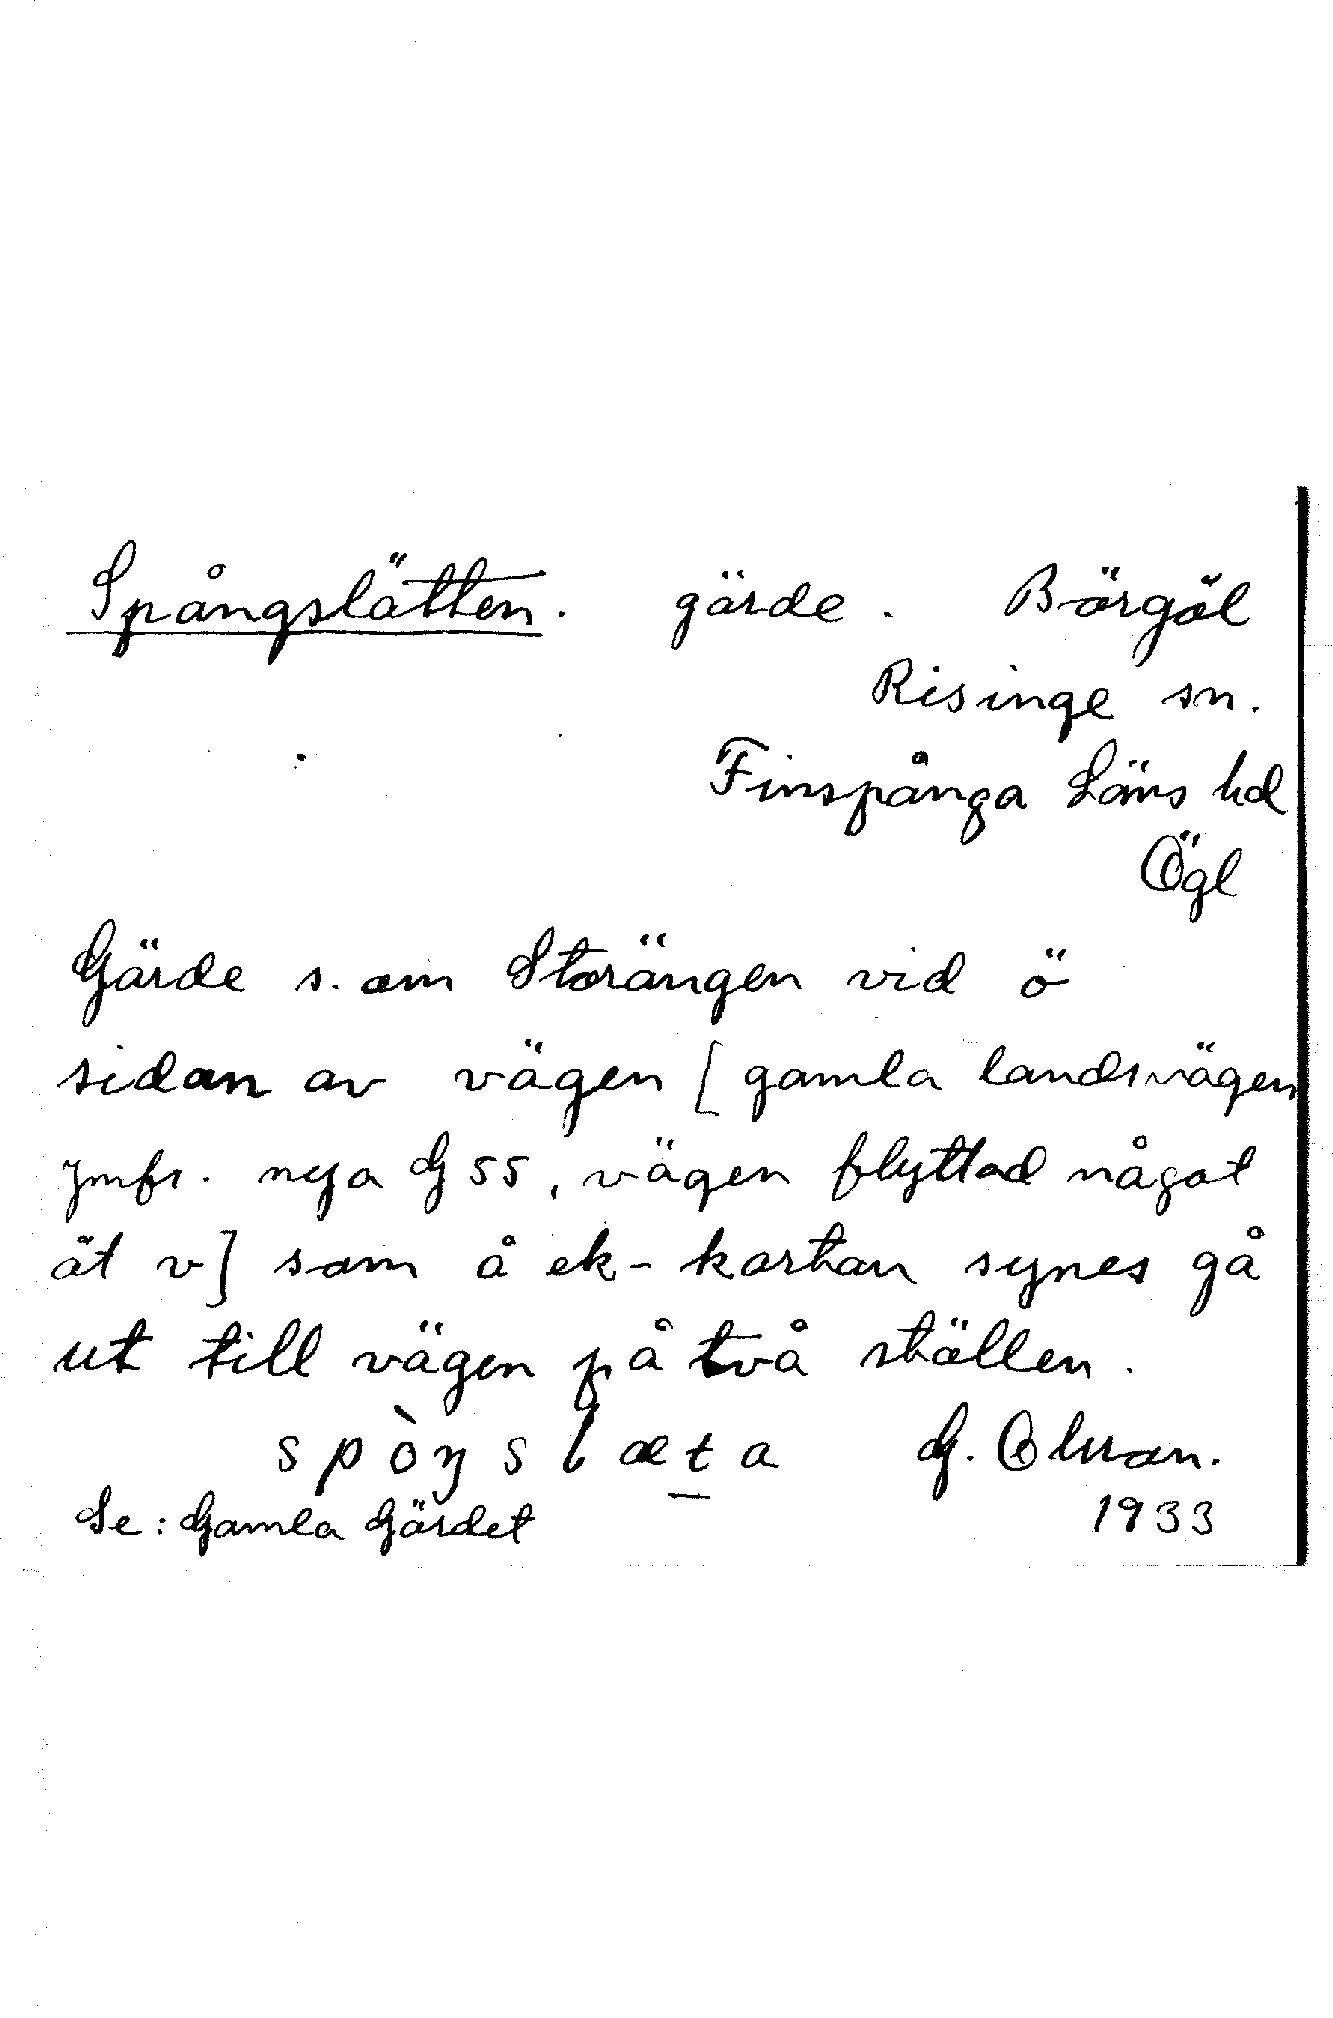 Spångslätten. gärde. Börgöl
Risinge sn.
Finspånga Läns hd
Ögl
Gärde s. om Storängen vid ö
sidan av vägen [gamla landsvägen
jmfr. nya G 55, vägen flyttad något
åt v] som å ek-kartan synes gå
ut till vägen på två ställen.
spòŋslæta G. Olsson.
Se: Gamla Gärdet 1933